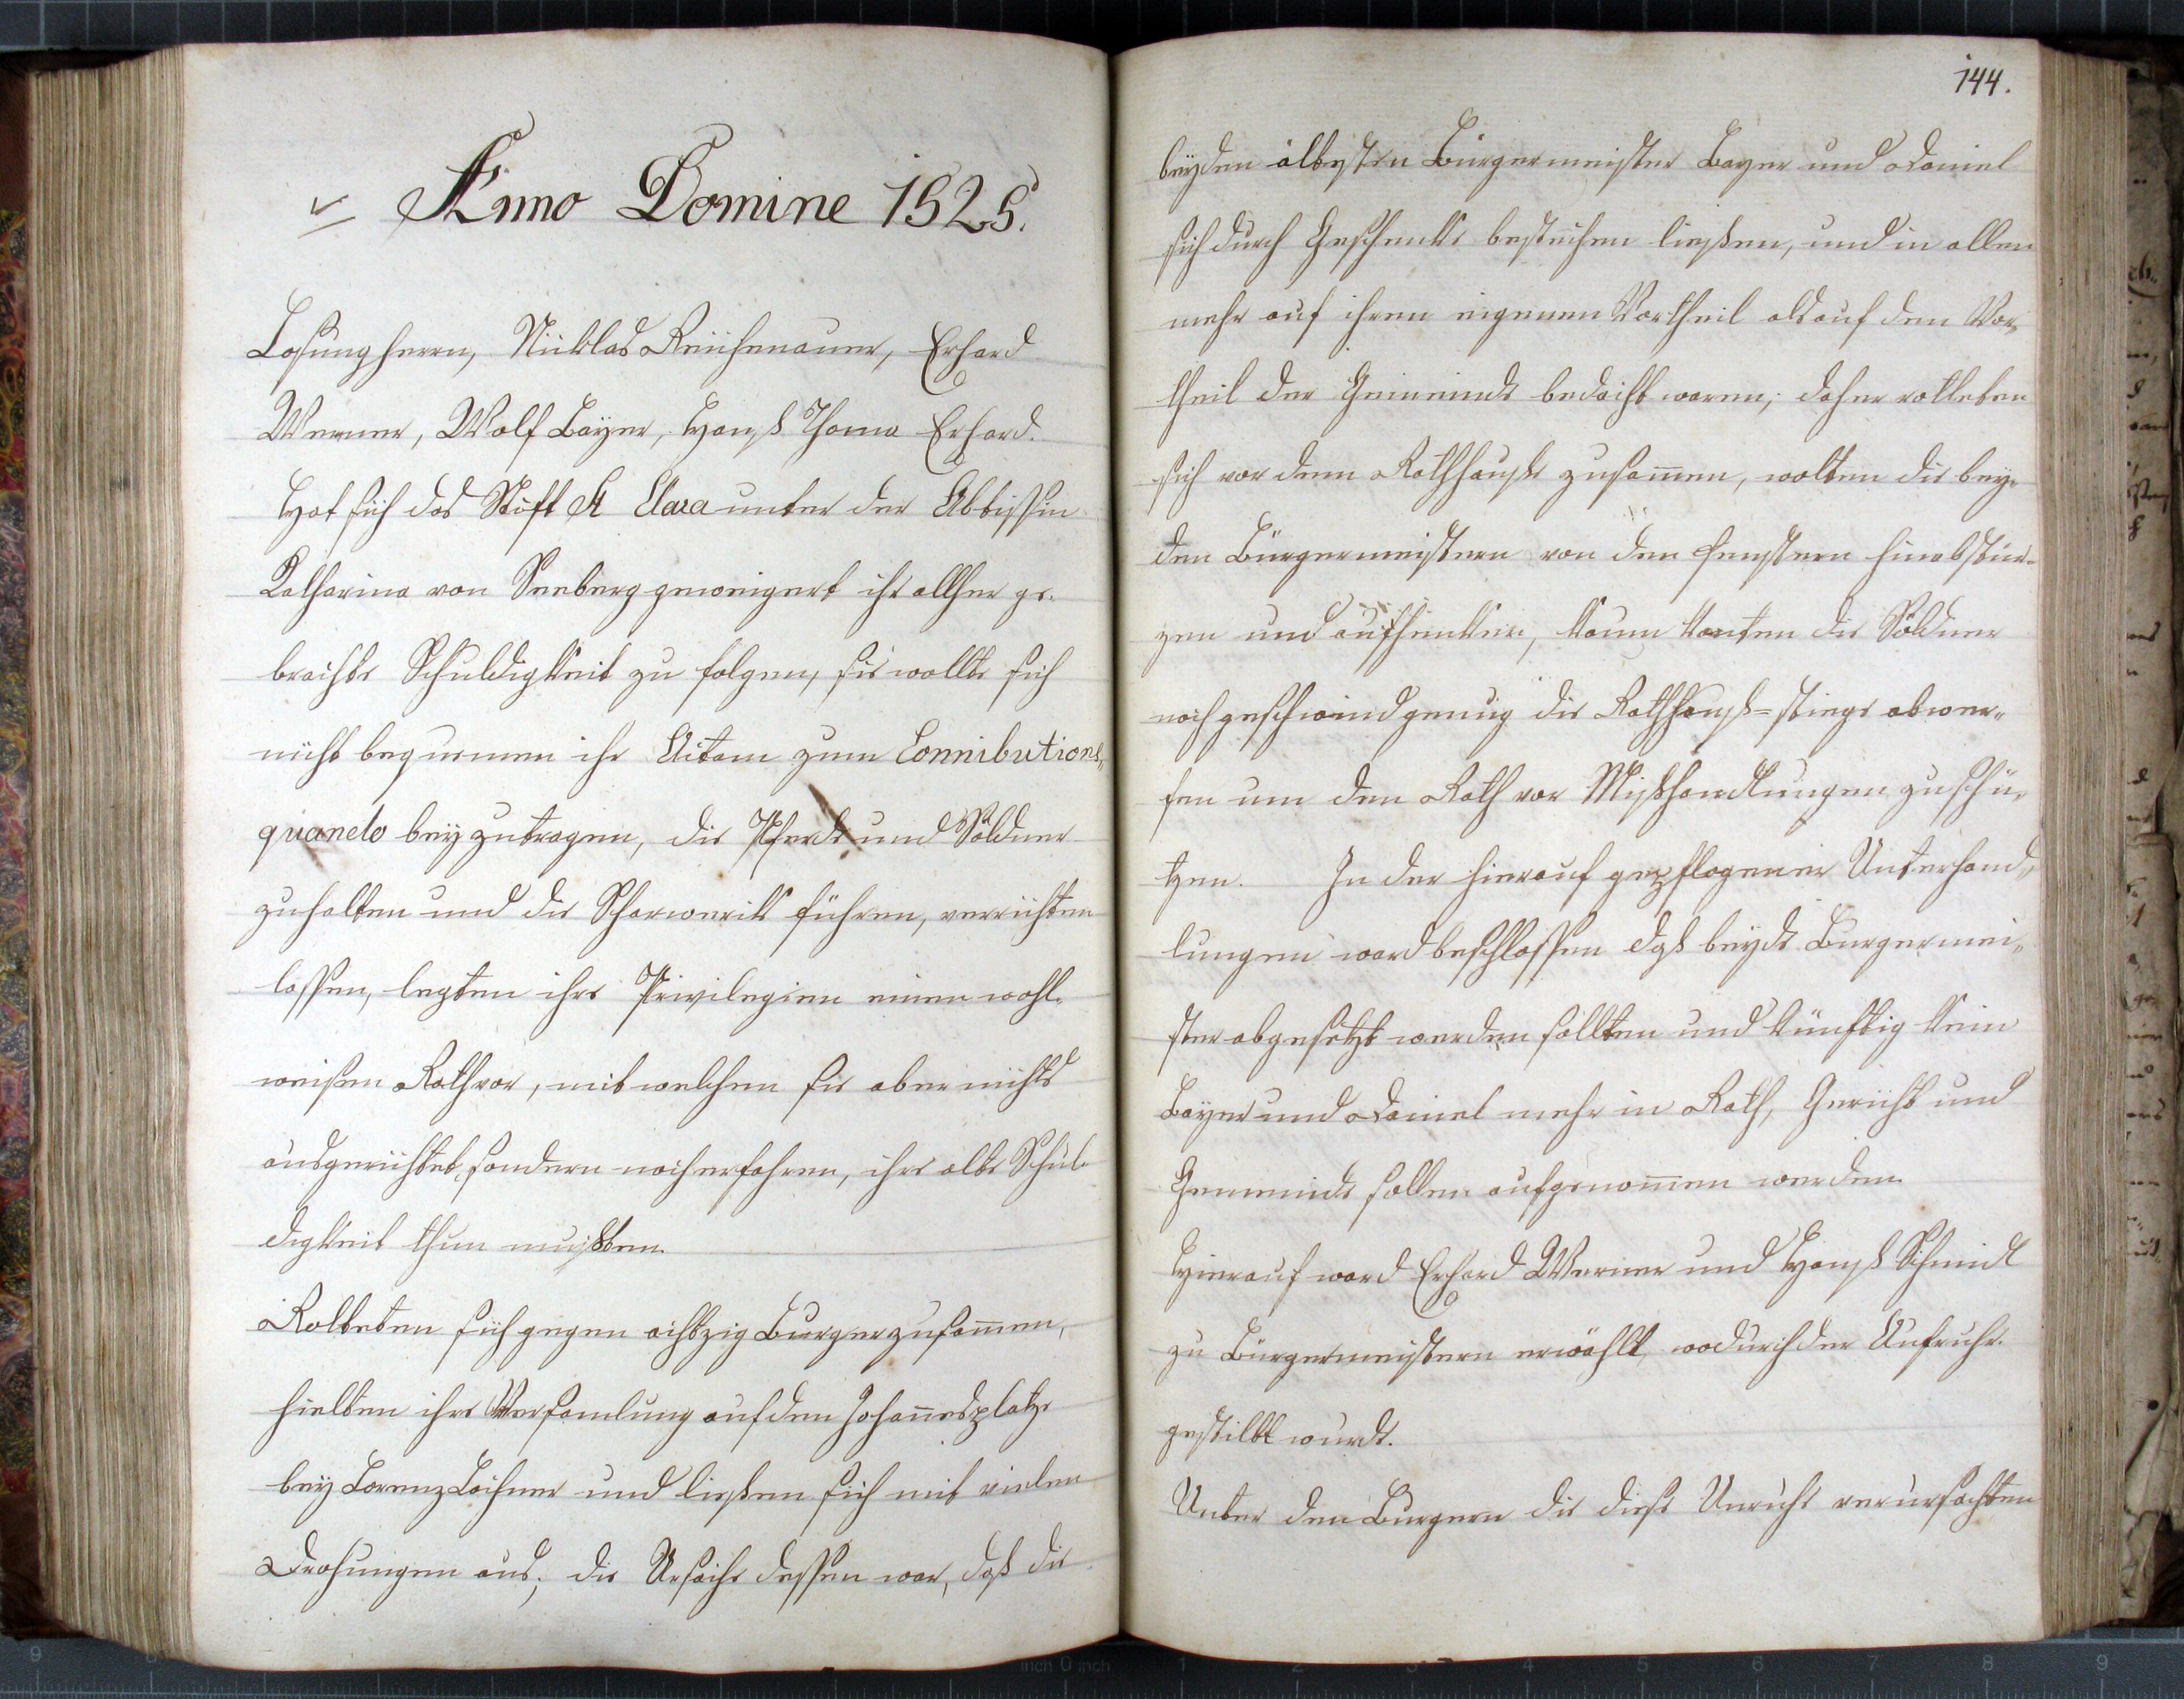 Anno Domine 1525.
Losungherrn, Nicklas Reichenauer, Erhard
Werner, Wolf Bayer, Hanß Thoma Erhard.
Hat sich das Stift St Clara unter der Abbtissin
Katharina von Seeberg geweigert ihr allher ge-
brachte Schuldigkeit zu folgen, sie wollte sich
nicht bequemen ihr zum Connibutions„
quando beyzutragen, die Pferde und Söldner
zuhalten und die Scharwerk führen, verrichten
lassen, legten ihre Privilegien einen wohl-
weißen Rath vor, mit welchen sie aber nichts
ausgerichtet, sondern noch erfahren, ihre alte Schul-
digkeit thun mußten.
Rotteten sich gegen achtzig Burger zusamen,
hielten ihre Versamlung auf den Johanesplatze
bey Lorenz Lochner und ließen sich mit vielen
Drohungen aus; die Ursache dessen war, daß die
144.
beyden ältesten Bürgermeister Bayer und Daniel
sich durch Geschenke bestechen ließen, und in allen
mehr auf ihren eigenen Vortheil als auf den Vor„
theil der Gemeinde bedacht waren; daher rotteten
sich vor dem Rathhauße zusamen, wolten die bey-
den Bürgermeistern von den Fenstern hinabstür-
zen und aufhenken, kaum konten die Söldner
noch geschwind genug die Rathhauß=stiege abwer„
fen um den Rath vor Mißhandlungen zuschü„
tzen. In der hierauf gepflogener Unterhand„
lungen ward beschlossen daß beyde Burgermei„
ster abgesetzt werden sollten und künftig kein
Bayer und Daniel mehr in Rath, Gericht und
Gemeinde sollen aufgenomen werden.
Hierauf ward Erhard Werner und Hanß Schmidl
zu Bürgermeistern erwählt, wodurch der Aufruhr
gestillt wurde.
Unter den Burgern die diese Unruhe verursachten